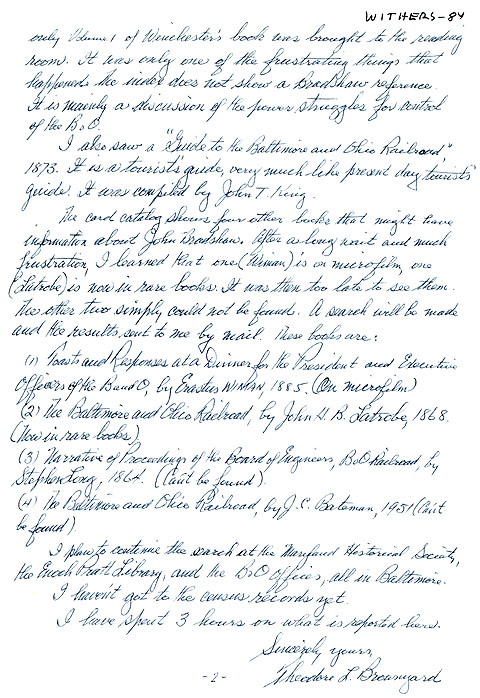 WITHERS-84
only Volume 1 of Winchester's book was brought to the reading
room. It was only one of the frustrating things that
happened. the index does not show a Bradshaw reference.
It is mainly a discussion of the power struggles for control
of the B&O.
I also saw a "Guide to the Baltimore and Ohio Railroad,"
1873. It is a tourist's guide, very much like present day tourist's
guide. It was compiled by John T. King.
The card catalog shows four other books that might have
information about John Bradshaw. After a long wait and much
frustration, I learned that one (Wiman) is on microfilm, one
(Latrobe) is now in rare books. It was then too late to see them.
The other two simply could not be found. A search will be made
and the results sent to me by mail. These books are:
(1) Toasts and Responses at a Dinner for the President and Executive
Officers of the B and O, by Erastus WIMAN, 1885. (On microfilm)
(2) The Baltimore and Ohio Railroad, by John H. B. Latrobe, 1868.
(Now in rare books)
(3) Narrative of Proceedings of the Board of Engineers, B&O Railroad, by
Stephen Long, 1864. (Can't be found).
(4) The Baltimore and Ohio Railroad, by J. C. Bateman, 1951 (Can't
be found)
I plan to continue the search at the Maryland Historical Society,
the Enoch Pratt Library, and the B&O offices, all in Baltimore.
I haven't got to the census records yet.
I have spent 3 hours on what is reported here.
Sincerely yours,
Theodore L.
-2-